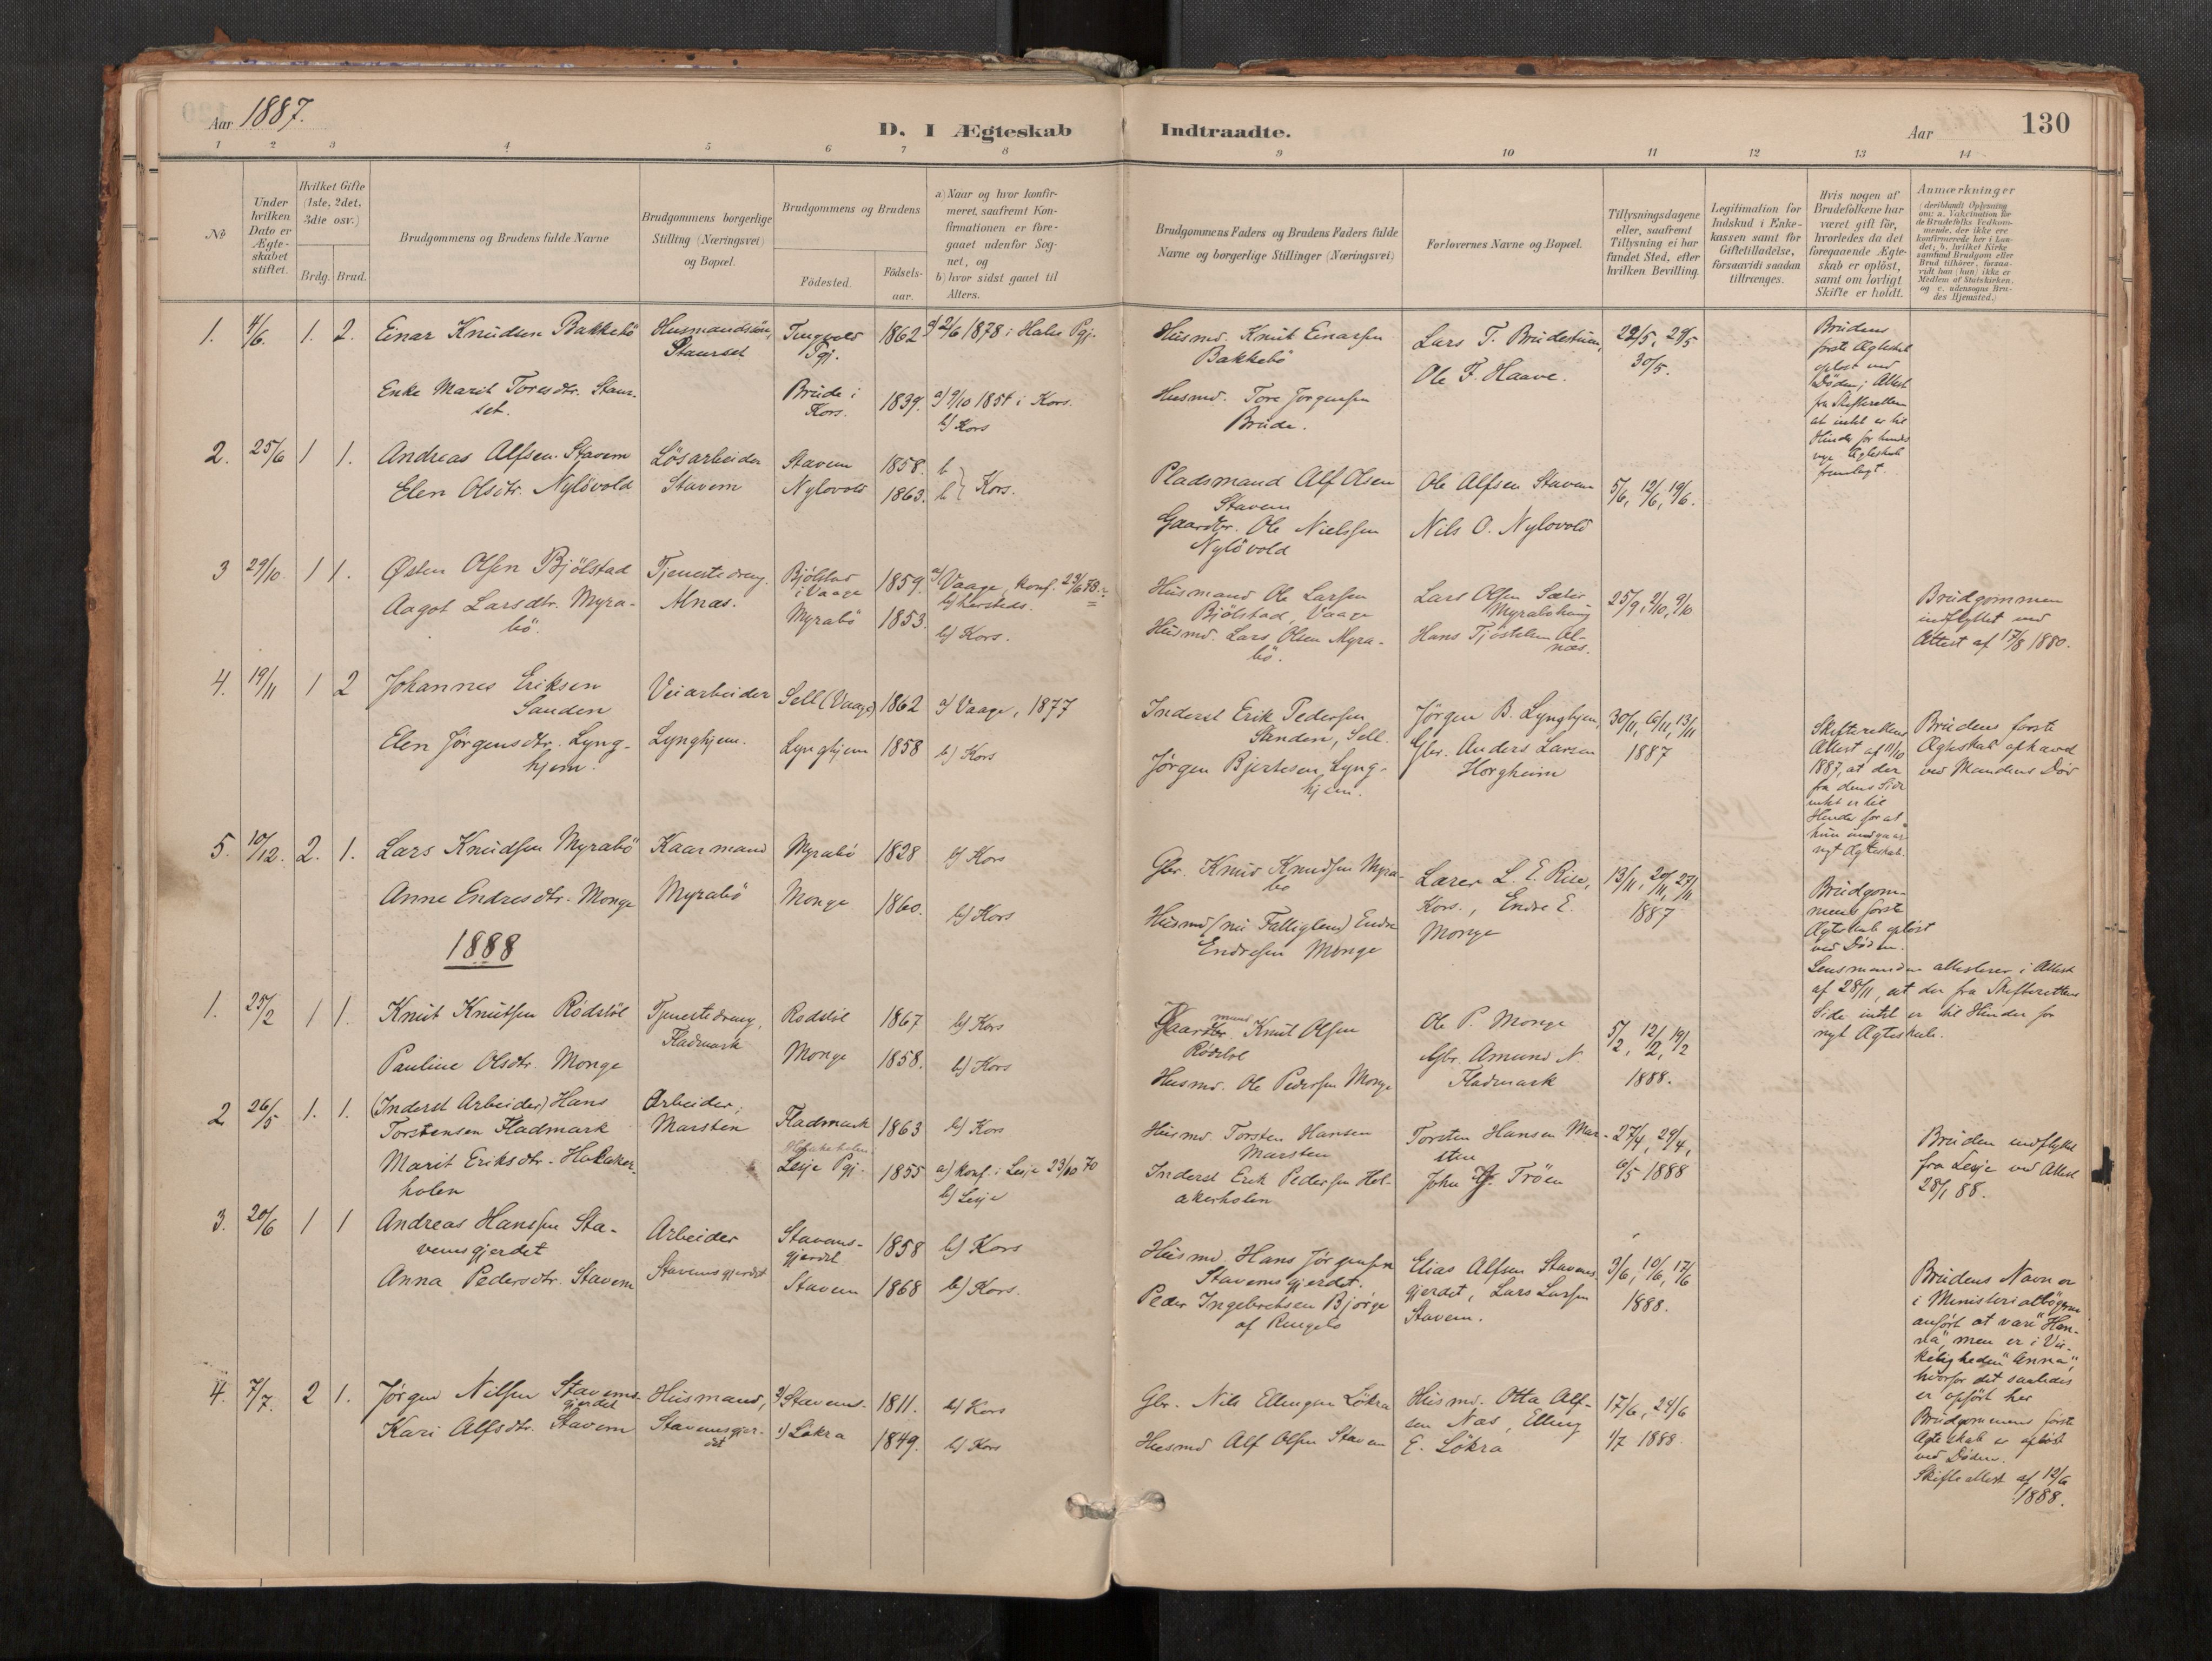 Aar 1887.
D. I Ægteskab Indtraadte.
Aar
130
1 2 3 4 5 6 7 8 9 10 11 12 13 14
No
Under hvilken Dato er Ægteskabet stiftet.
Hvilket Gifte (1ste, 2det, 3die osv.)
Brdg. Brud.
Brudgommens og Brudens fulde Navne
Brudgommens borgerlige Stilling (Næringsvei) og Bopæl.
Brudgommens og Brudens
Fødested.
Fødsels-aar.
a) Naar og hvor konfirmeret, saafremt Konfirmationen er foregaaet udenfor Sognet, og
b) hvor sidst gaaet til Alters.
Brudgommens Faders og Brudens Faders fulde Navne og borgerlige Stillinger (Næringsvei)
Forlovernes Navne og Bopæl.
Tillysningsdagene eller, saafremt Tillysning ei har fundet Sted, efter hvilken Bevilling.
Legitimation for Indskud i Enkekassen samt for Giftetilladelse, forsaavidt saadan tiltrænges.
Hvis nogen af Brudefolkene har været gift før, hvorledes da det foregaaende Ægteskab er opløst, samt om lovligt Skifte er holdt.
Anmærkninger (deriblandt Oplysning om: a. Vakcination for de Brudefolks Vedkommende, der ikke ere konfirmerede her i Landet; b. hvilket Kirkesamfund Brudgom eller Brud tilhører, forsaavidt han (hun) ikke er Medlem af Statskirken, og c. udensogns Brudes Hjemsted.)
1. 4/6. 1. 2. Einar Knudsen Bakkebö Husmandssön, Staurset Tingvold Pgj. 1862 a) 2/6 1878 i Halse Pgj.
Husmd. Knut Einarsen Bakkebö
Lars T. Brudestuen, Ole F. Haave.
22/5, 29/5 30/5.
Brudens første Ægteskab opløst ved Døden; Attest fra Skifteretten at intet er til Hinder for hendes nye Ægteskab fremlagt.
Enke Marit Toresdtr. Staurset. Brude i Kors. 1839. a) 9/10 1854 i Kors. b) Kors
Husmd. Tore Jorgensen Brude.
2. 25/6 1 1. Andreas Alfsen Stavem Lösarbeider Stavem Stavem 1858. b
Elen Olsdtr. Nylövold Nylovold 1863. b } Kors.
Pladsmand Alf Olsen Stavem
Gaardbr. Ole Nielssen Nylövold
Ole Alfsen Stavem
Nils O. Nylovold
5/6, 12/6, 19/6.
3 29/10. 1 1. Østen Olsen Bjölstad Tjenestedreng. Alnæs. Bjölstad i Vaage 1859. a) Vaage, konf. 23/6 78. b) hersteds.
Aagot Larsdtr. Myrabö. Myrabö 1853. b) Kors.
Husmand Ole Larsen Bjölstad, Vaage
Husmd. Lars Olsen Myrabö.
Lars Olsen Sæter
Hans Tjöstelsen Alnæs.
25/9, 2/10, 9/10
Brudgommen indflyttet med Attest af 17/8 1880.
4. 19/11 1 2 Johannes Eriksen Sanden Veiarbeider Sell (Vaage) 1862 a) Vaage, 1877
Elen Jörgensdtr. Lynghjem. Lynghjem. Lynghjem 1858 b) Kors
Inderst Erik Pedersen Sanden, Sell.
Jörgen Bjertesen Lynghjem.
Jörgen B. Lynghjem, Gbr. Anders Larsen Horgheim
30/11, 6/11, 13/11 1887
Skifterettens Attest af 11/10 1887, at der fra dens Side intet er til Hinder for at hun indgaar nyt Ægteskab.
Brudens første Ægteskab ophævet ved Mandens Død
5. 10/12. 2. 1. Lars Knudsen Myrabö Kaarmand Myrabö Myrabö 1828 b) Kors
Anne Endresdtr. Monge Monge 1860. b) Kors
Gbr. Knud Knudsen Myrabö
Husmd (nu Fattiglem) Endre Endresen Monge
Lærer L. E. Rise, Kors., Endre E. Monge
13/11, 20/11, 27/11 1887
Brudgommens første Ægteskab opløst ved Døden.
Lensmanden attesterer i Attest af 28/11, at der fra Skifterettens Side intet er til Hinder for nyt Ægteskab.
1888
1. 25/2 1 1. Knut Knutsen Rödstöl Tjenestedreng, Fladmark Rødstöl 1867 b) Kors
Pauline Olsdtr. Monge Monge 1858. b) Kors
Gaardmand Knut Olsen Rödstöl
Husmd. Ole Pedersen Monge
Ole P. Monge
Gbr. Amund N. Fladmark
5/2, 12/2, 19/2 1888.
2 26/5. 1. 1. (Inderst Arbeider) Hans Torstensen Fladmark Arbeider, Marstein Fladmark 1863 b) Kors
Marit Eriksdtr. Holakerholen Lesje Pgj. 1855 a) konf. i Lesje 23/10 70 b) Lesje
Husmd. Torsten Hansen Marsten
Inderst Erik Pedersen Holakerholen
Torsten Hansen Marsten
John Tröen
27/4, 29/4, 6/5 1888
Bruden indflyttet fra Lesje ved Attest 28/1 88.
3. 20/6 1 1 Andreas Hanssen Stavemsgjerdet Arbeider Stavemsgjerdet Stavemsgjerdet 1858 b) Kors
Anna Pedersdtr. Stavem Stavem 1868 b) Kors.
Husmd Hans Jörgensen Stavemsgjerdet.
Peder Ingebretsen Bjørge af Ringebo
Elias Alfsen Stavemsgjerdet, Lars Larsen Stavem.
3/6, 10/6, 17/6 1888.
Brudens Navn er i Ministerialbogen anført at være "Hanna", men er i Virkeligheden "Anna", hvorfor det saaledes er opført her
4. 7/7. 2 1. Jörgen Nilsen Stavemsgjerdet Husmand, Stavemsgjerdet 2) Stavems. 1811. b) Kors
Kari Alfsdtr. Stavem 1) Lökra 1849. b) Kors
Gbr. Nils Ellingsen Lökra
Husmd Alf Olsen Stavem
Husmd. Otta Alfsen Næs, Elling E. Lökra
17/6, 24/6 1/7 1888.
Brudgommens første Ægteskab er opløst ved Døden. Skifteattest af 12/6 1888.